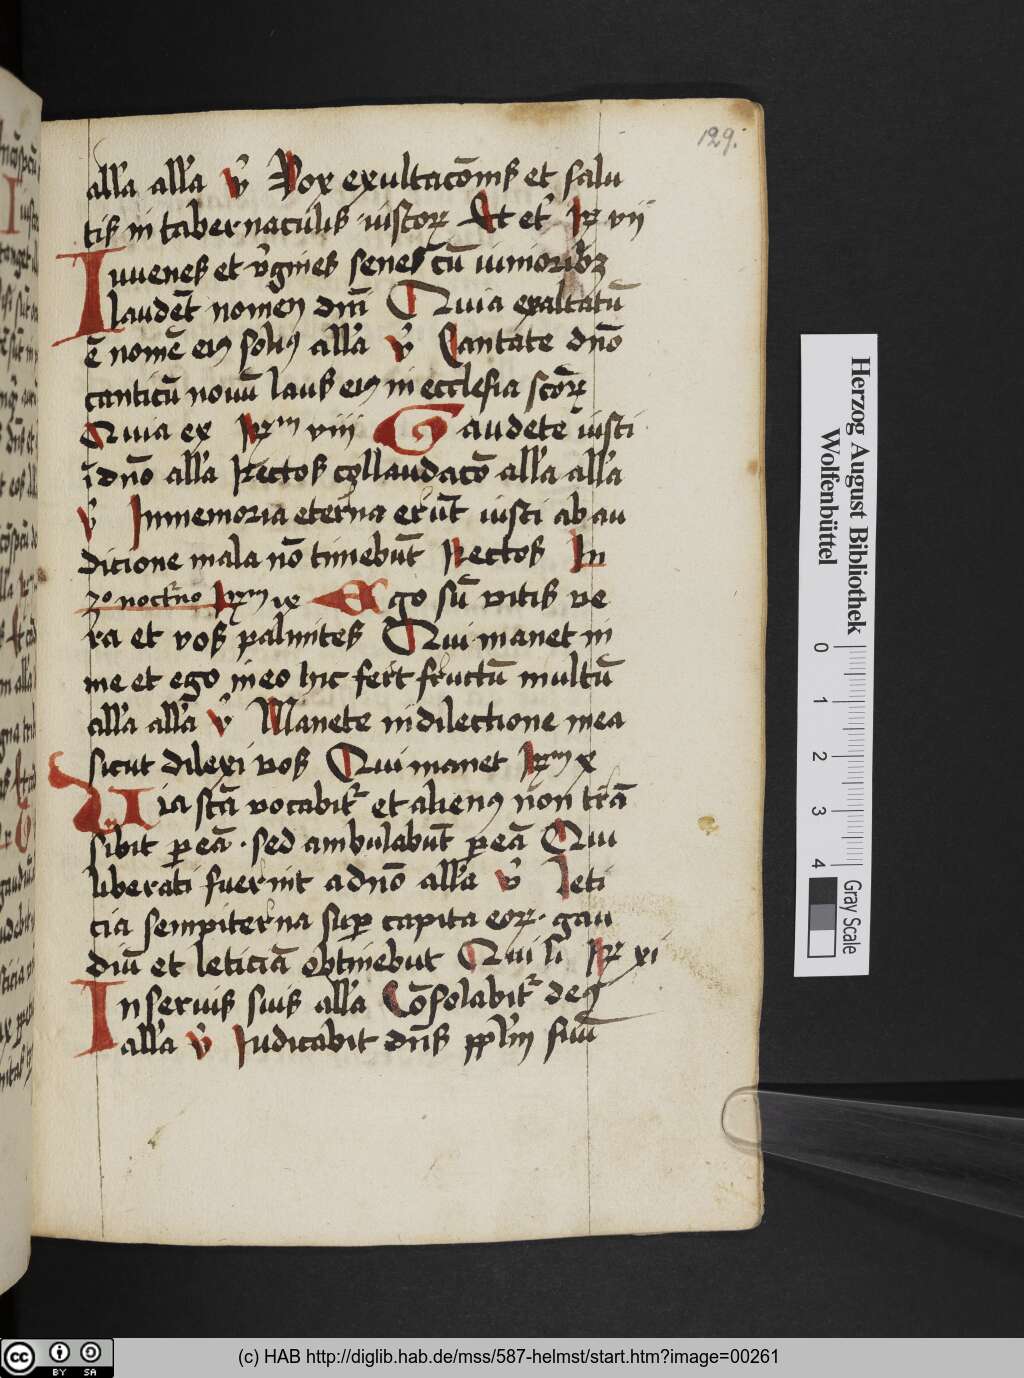 129.
all'a all'a v̄ Vox exultacōnis et salu
tis in tabernaculis iustorꝝ Et et' R̷ vij
Iuuenes et v'gines senes cū iuniorib9
laudēt nomen dnī Quia exaltatū
ē nomē ei9 soli9 all'a v̄ Cantate dnō
canticū nouū laus ei9 in ecclesia scōrꝝ
Quia ex R̷m viij Gaudete iusti
ī dnō all'a Rectos collaudacō all'a all'a
v̄ In memoria eterna erūt iusti ab au
dicione mala nō timebūt Rectos In
3o noct'no R̷m ix Ego sū vitis ve
ra et vos palmites Qui manet in
me et ego in eo hic fert fructū multū
all'a all'a v̄ Manete in dilectione mea
sicut dilexi vos Qui manet R̷m x
Uia stā vocabit' et alien9 non trā
sibit ꝑ eā · sed ambulabūt ꝑ eā Qui
liberati fuerint a dnō all'a v̄ Leti
cia sempiterna suꝑ capita eorꝝ · gau
diū et leticiā obtinebut Qui li R̷ xi
In seruis suis all'a Cōsolabit' de9
all'a v̄ Iudicabit dns ppl'm suū
Herzog August Bibliothek
Wolfenbüttel
0 1 2 3 4 Gray Scale
cc BY SA
(c) HAB http://diglib.hab.de/mss/587-helmst/start.htm?image=00261